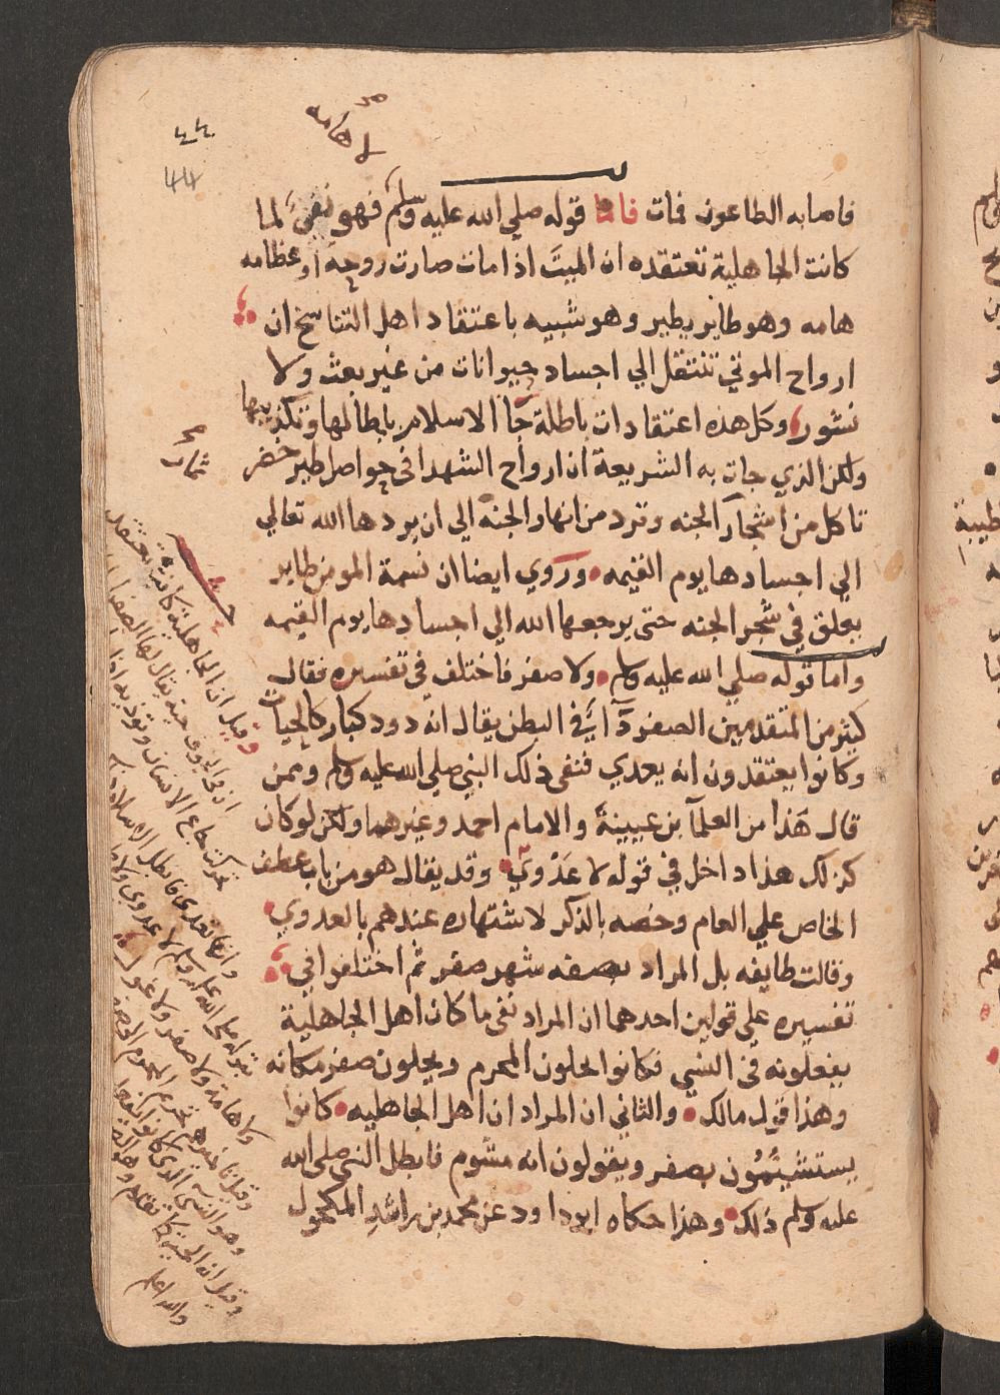 صح
لا هامه
٤٤
44
فاصابه الطاعون فمات فاما قوله صلي الله عليه وسلم فهو نفي لما
كانت الجاهلية تعتقده ان الميت اذا مات صارت روحه او عظامه
هامه وهو طاير يطير وهو شبيه باعتقاد اهل التناسخ ان
ارواح الموتي تنتقل الي اجساد حيوانات من غير بعث ولا
نشور وكل هذه اعتقادات باطلة جا الاسلام بابطالها وتكذيبها
ولكن الذي جات به الشريعة ان ارواح الشهدا في حواصل طير خضر
تاكل من اشجار الجنه وترد من انهار الجنة الي ان يردها الله تعالي
ثمار
الي اجسادها يوم القيمه وروي ايضا ان نسمة المومن طاير
يعلق في شجر الجنه حتى يرجعها الله الي اجسادها يوم القيمه
واما قوله صلي الله عليه وسلم ولا صفر فاختلف في تفسيره فقال
كثير من المتقدمين الصفر دآء في البطن يقال انه دود كبار كالحيات
وكانوا يعتقدون انه يعدي فنفى ذلك النبي صلي الله عليه وسلم وممن
قال هذا من العلمآ بن عيينة والامام احمد وغيرهما ولكن لو كان
كذلك هذا داخل في قوله لا عدوي وقد يقال هو من باب عطف
الخاص علي العام وخصه بالذكر لاشتهاره عندهم بالعدوي
وقالت طايفه بل المراد بصفر شهر صفر ثم اختلفوا في
تفسيره علي قولين احدهما ان المراد نفي ما كان اهل الجاهلية
يفعلونه في النسي فكانوا يحلون المحرم ويحلون صفر مكانه
وهذا قول مالك والثاني ان المراد ان اهل الجاهليه كانوا
يستشيمون بصفر ويقولون انه مشوم فابطل النبي صلي الله
عليه وسلم ذلك وهذا حكاه ابو داود عن محمد بن راشد المكحول
وقيل ان الجاهلية كانت تعتقد
ان في الجوف حية يقال لها الصفر
وانها تعدي فابطل الاسلام
بقوله صلي الله عليه وسلم لا عدوي ولا
ولا هامة ولا صفر ولا غول
وهو النسي الذي كانوا يفعلوا
والله اعلم